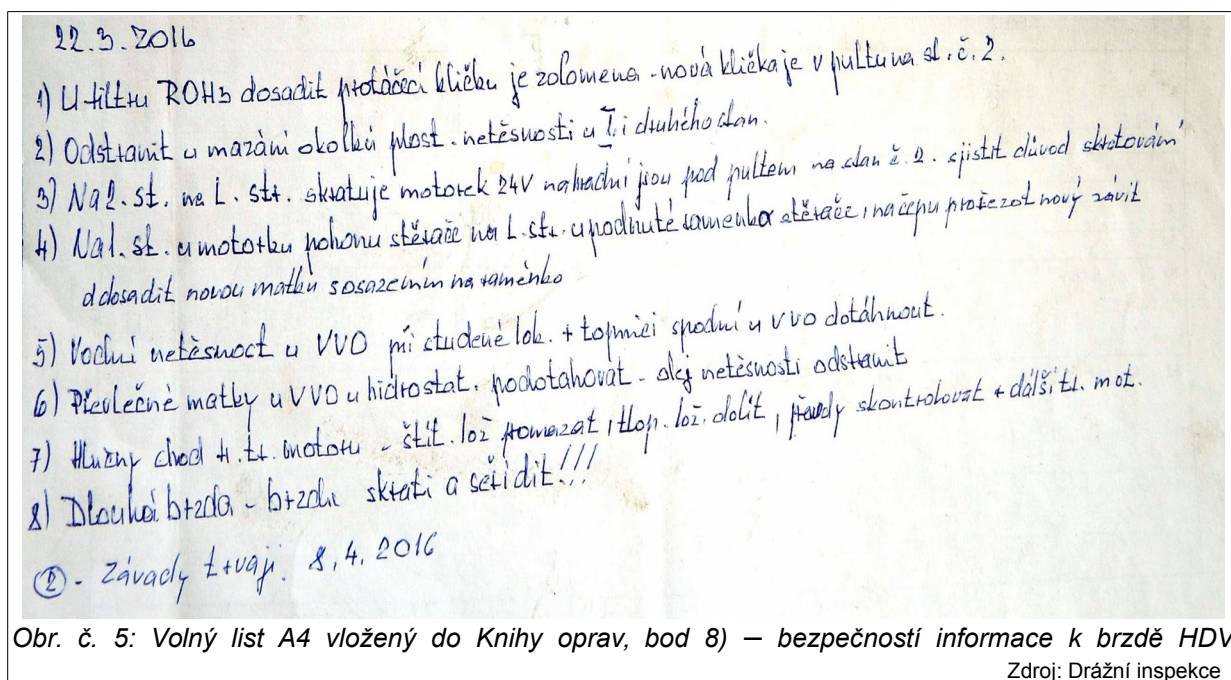 22.3.2016
1) U filtru ROH3 dosadit protáčecí kličku je zolomena - nová klička je v pultu na st. č. 2.
2) Odstranit u mazání okolků plost. netěsnosti u I. i druhého stan.
3) Na 2. st. na L. str. skratuje motorek 24V nahradní jsou pod pultem na stan č. 2. zjistit důvod skratování
4) Na 1. st. u motorku pohonu stěrače na L. str. upodnuté ramenko stěrače, na čepu prořezat nový závit
a dosadit novou matku s osazením na raménko
5) Vodní netěsnost u VVO při studené lok. + topnici spodní u VVO dotáhnout.
6) Převlečné matky u VVO u hidrostat. podotahovat - olej netěsnosti odstranit
7) Hlučný chod 4. tr. motoru - štít. lož promazat, tlap. lož. dolít, skontrolovat + další tr. mot.
8) Dlouhá brzda - brzdu skrátit a seřídit!!!
2 - Závady trvají. 8.4.2016
Obr. č. 5: Volný list A4 vložený do Knihy oprav, bod 8) – bezpečností informace k brzdě HDV
Zdroj: Drážní inspekce